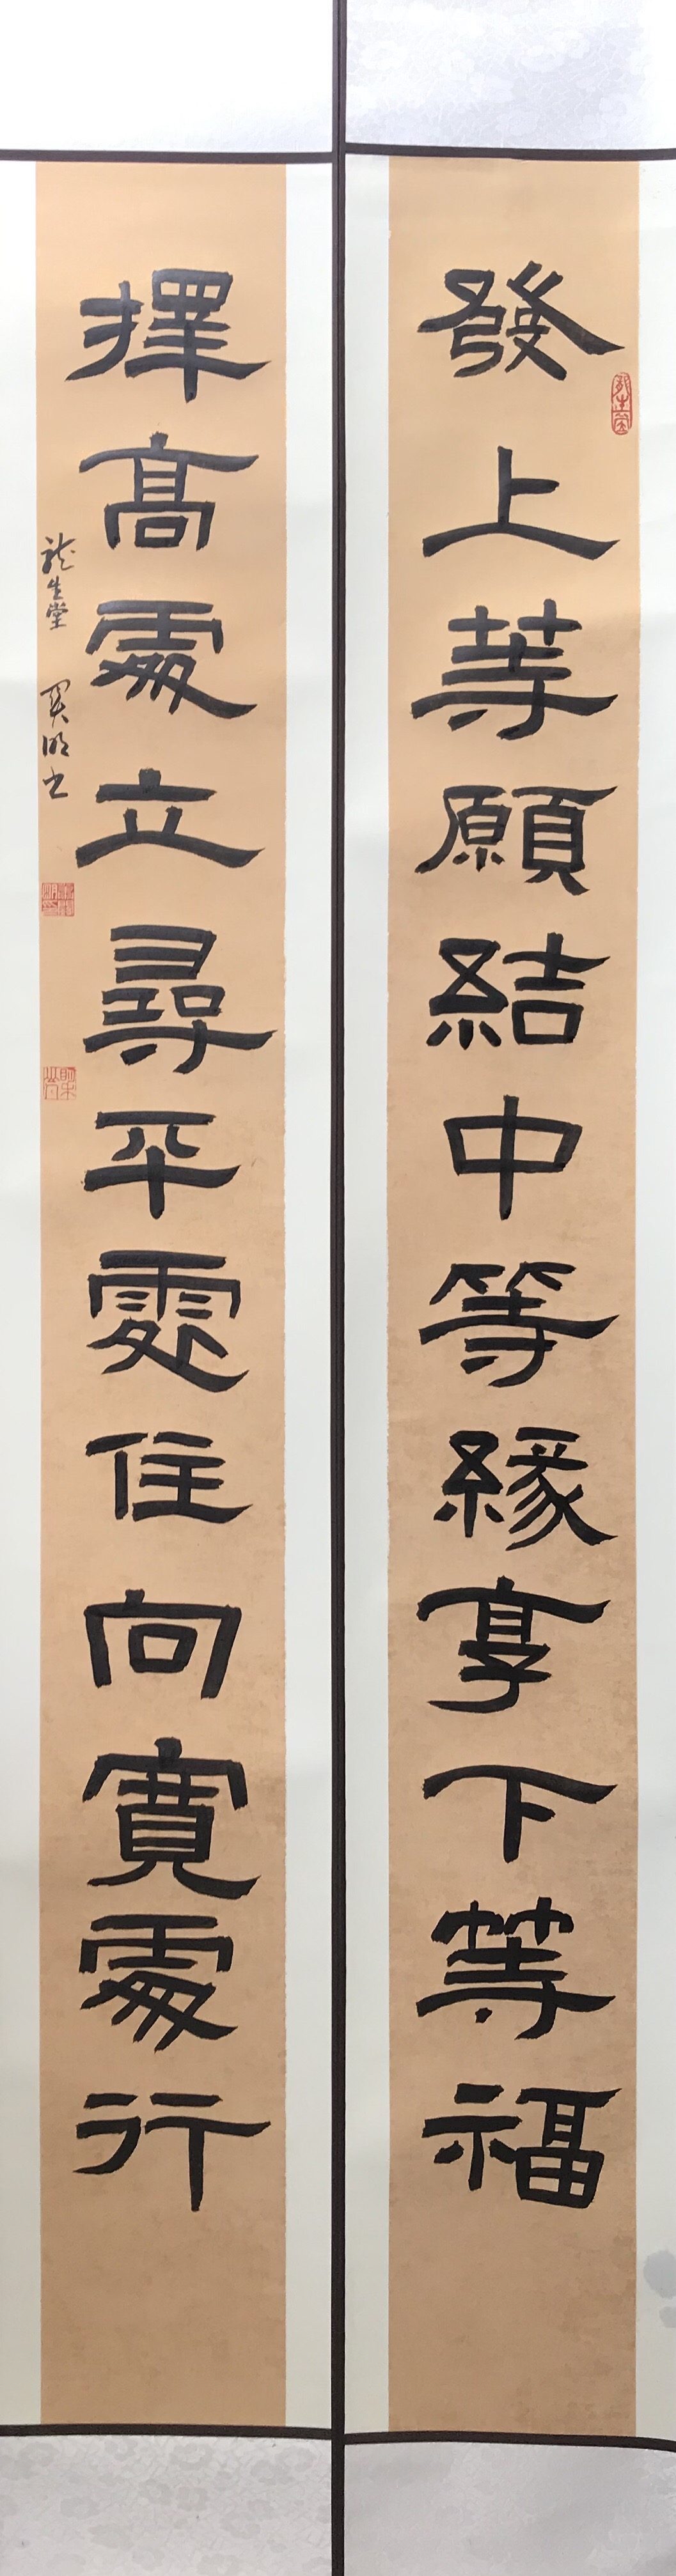 發上等願結中等緣享下等福
擇高處立尋平處住向寬處行
龍生堂